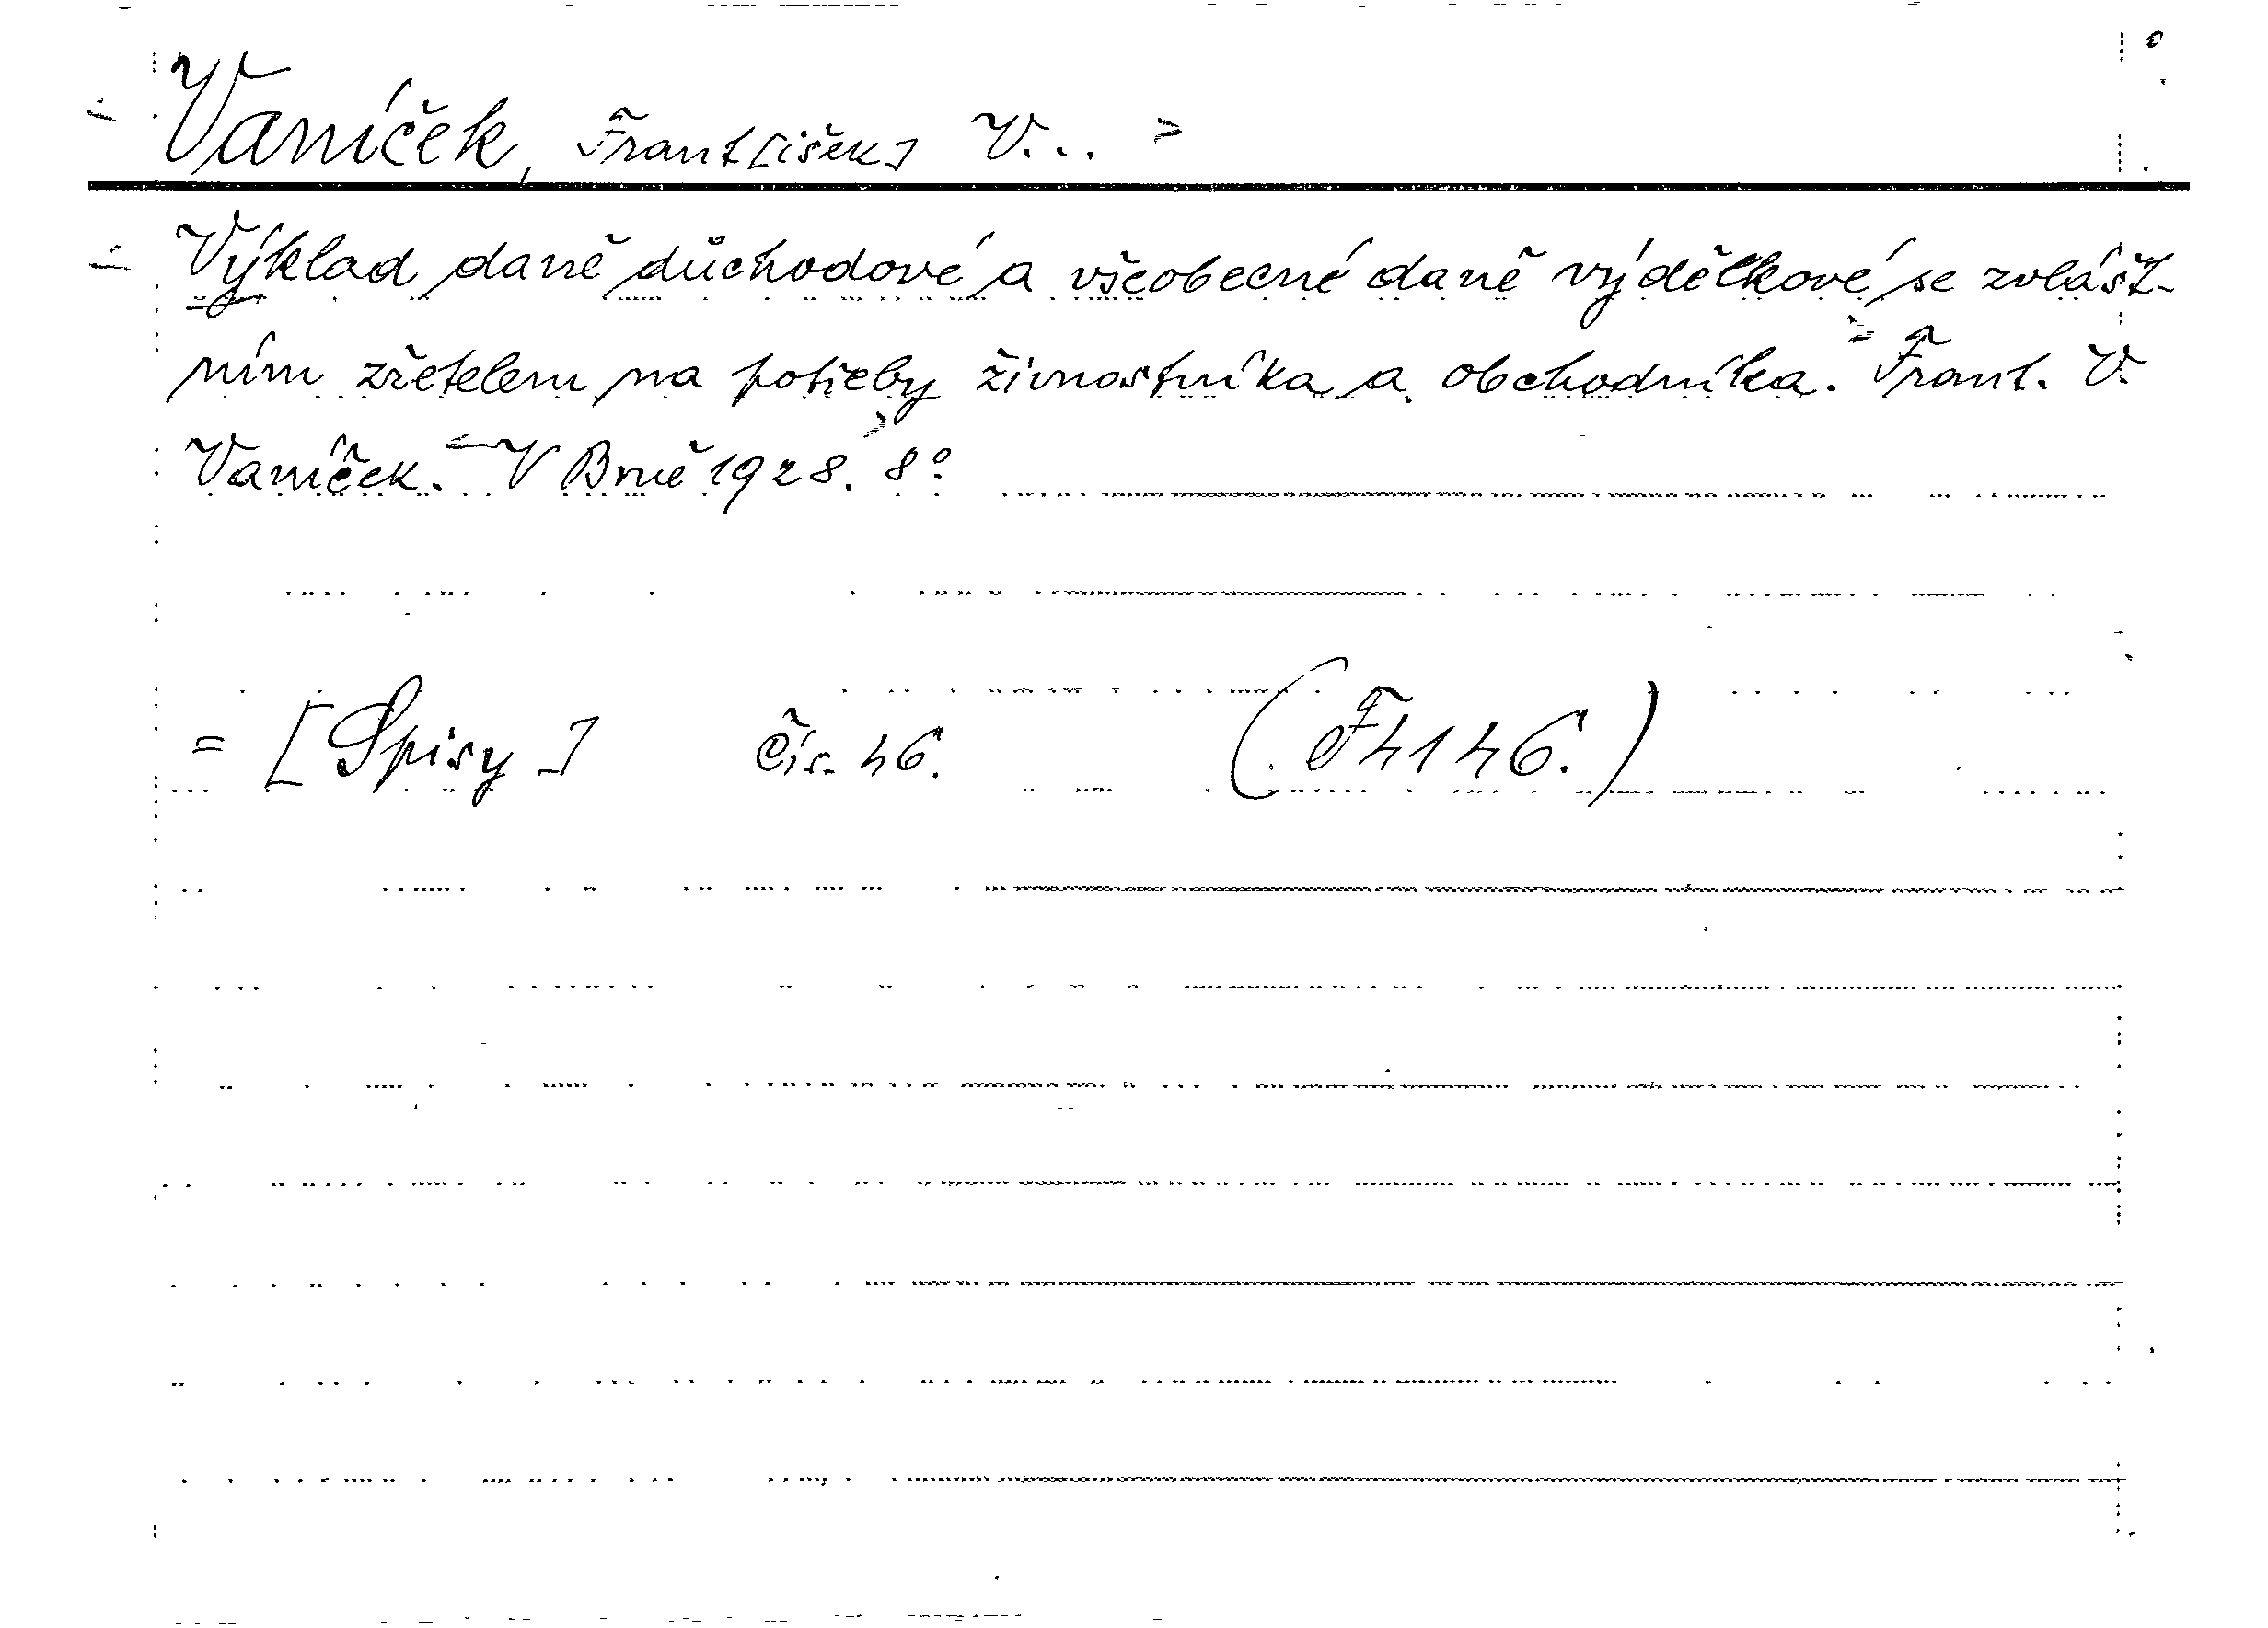 Vaníček, Frant[išek] V...
Výklad daně důchodové a všeobecné daně výdělkové se zvlášt-
ním zřetelem na potřeby živnostníka a obchodníka. Frant. V.
Vaníček. V Brně 1928. 8°
= [Spisy] Čís. 46. (F 4146.)